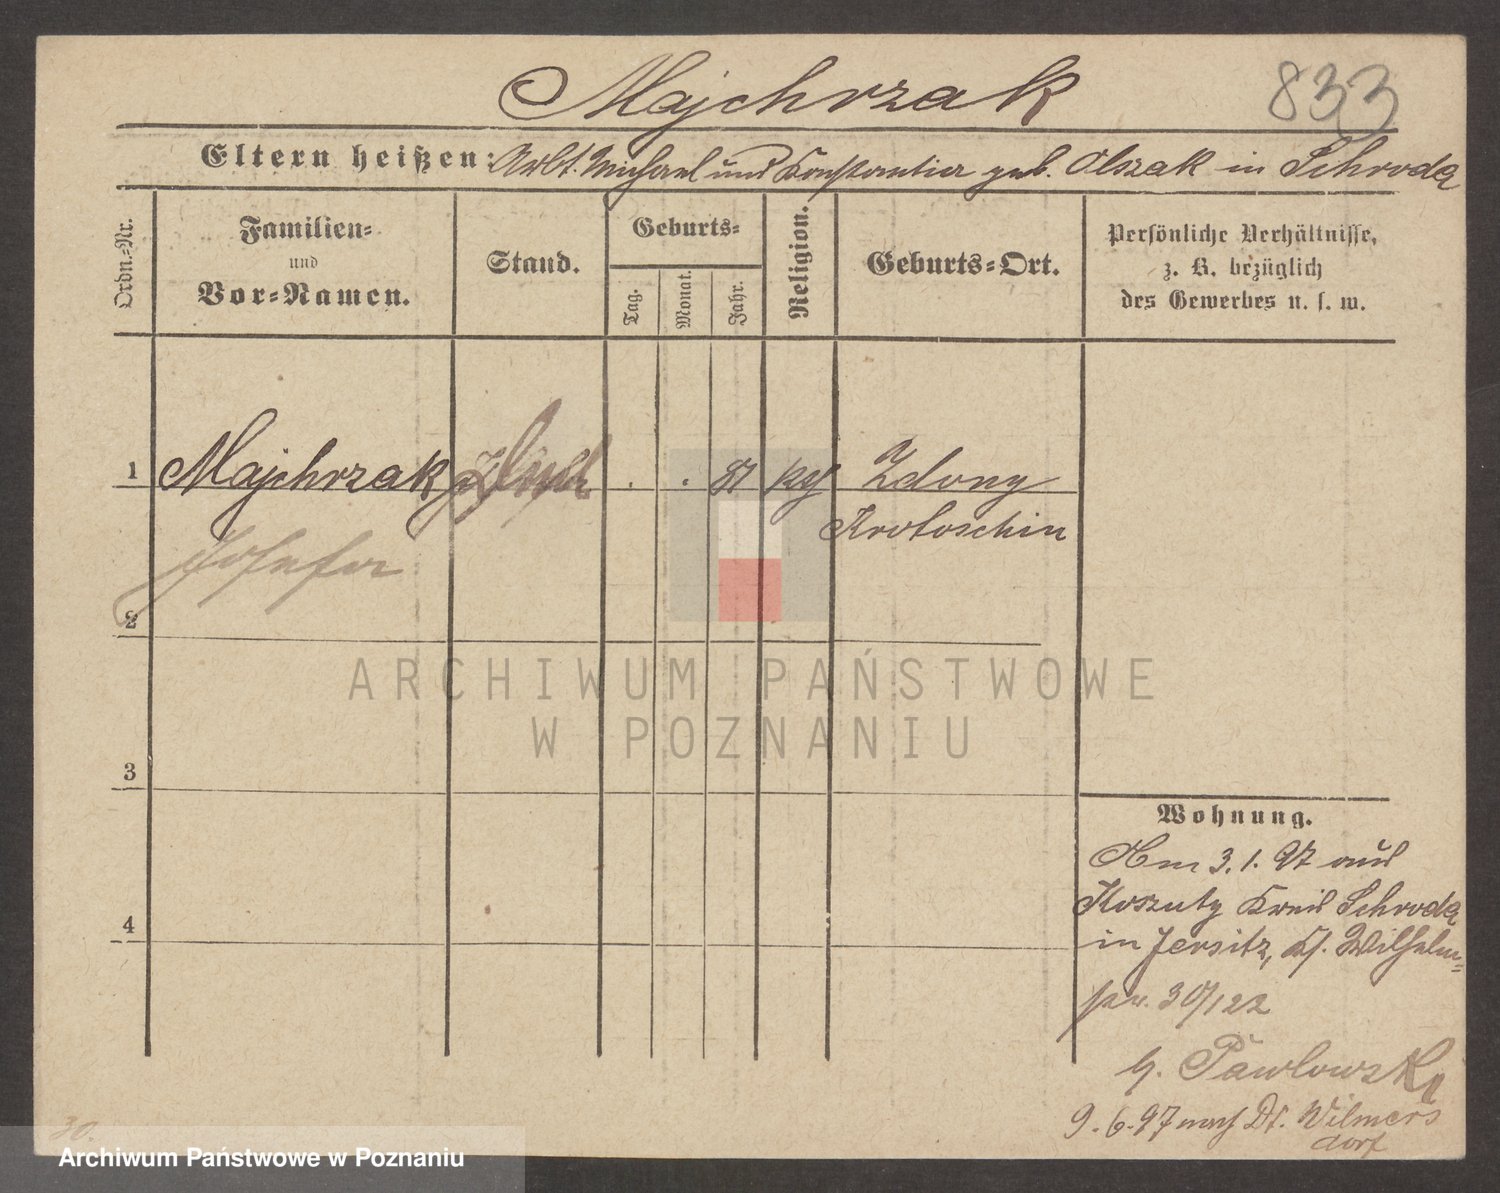 Majchrzak
833
Eltern heißen: Arbt. Michael und Konstantia geb. Olszak in Schroda
Ordn.-Nr.
Familien-
und
Vor-Namen.
Stand.
Geburts-
Tag.
Monat.
Jahr.
Religion.
Geburts-Ort.
Persönliche Verhältnisse,
z. B. bezüglich
des Gewerbes u. s. w.
1 Majchrzak . . 81 Zdony
Krotoschin
Josefa
2
3
4
Wohnung.
Am 3.1.97 aus
Koszuty Kreis Schroda
in Jersitz, Ks. Wilhelm-
30/122
Pawlowski
9.6.97 nach Dt. Wilmers
dorf
30.
ARCHIWUM PAŃSTWOWE
W POZNANIU
Archiwum Państwowe w Poznaniu